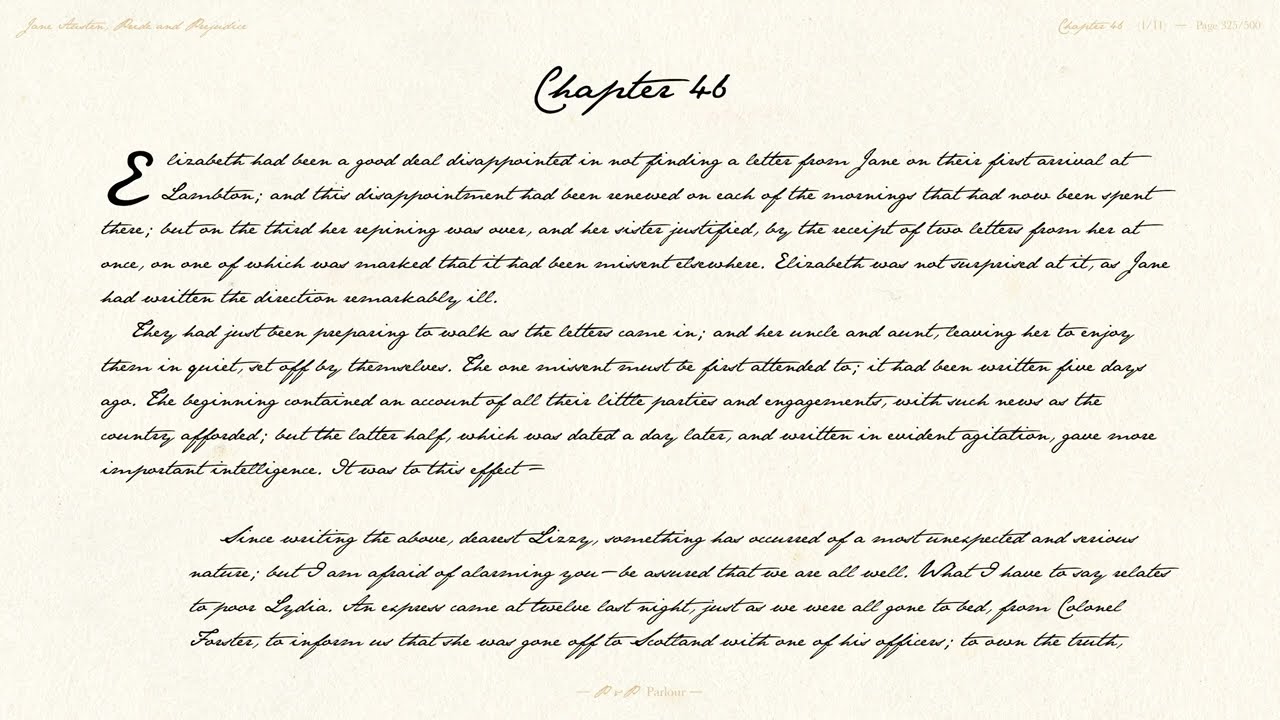 Jane Austen, Pride and Prejudice
Chapter 46 (1/11) — Page 325/500
Chapter 46
Elizabeth had been a good deal disappointed in not finding a letter from Jane on their first arrival at
Lambton; and this disappointment had been renewed on each of the mornings that had now been spent
there; but on the third her repining was over, and her sister justified, by the receipt of two letters from her at
once, on one of which was marked that it had been missent elsewhere. Elizabeth was not surprised at it, as Jane
had written the direction remarkably ill.
They had just been preparing to walk as the letters came in; and her uncle and aunt, leaving her to enjoy
them in quiet, set off by themselves. The one missent must be first attended to; it had been written five days
ago. The beginning contained an account of all their little parties and engagements, with such news as the
country afforded; but the latter half, which was dated a day later, and written in evident agitation, gave more
important intelligence. It was to this effect—
Since writing the above, dearest Lizzy, something has occurred of a most unexpected and serious
nature; but I am afraid of alarming you—be assured that we are all well. What I have to say relates
to poor Lydia. An express came at twelve last night, just as we were all gone to bed, from Colonel
Forster, to inform us that she was gone off to Scotland with one of his officers; to own the truth,
— P & P Parlour —